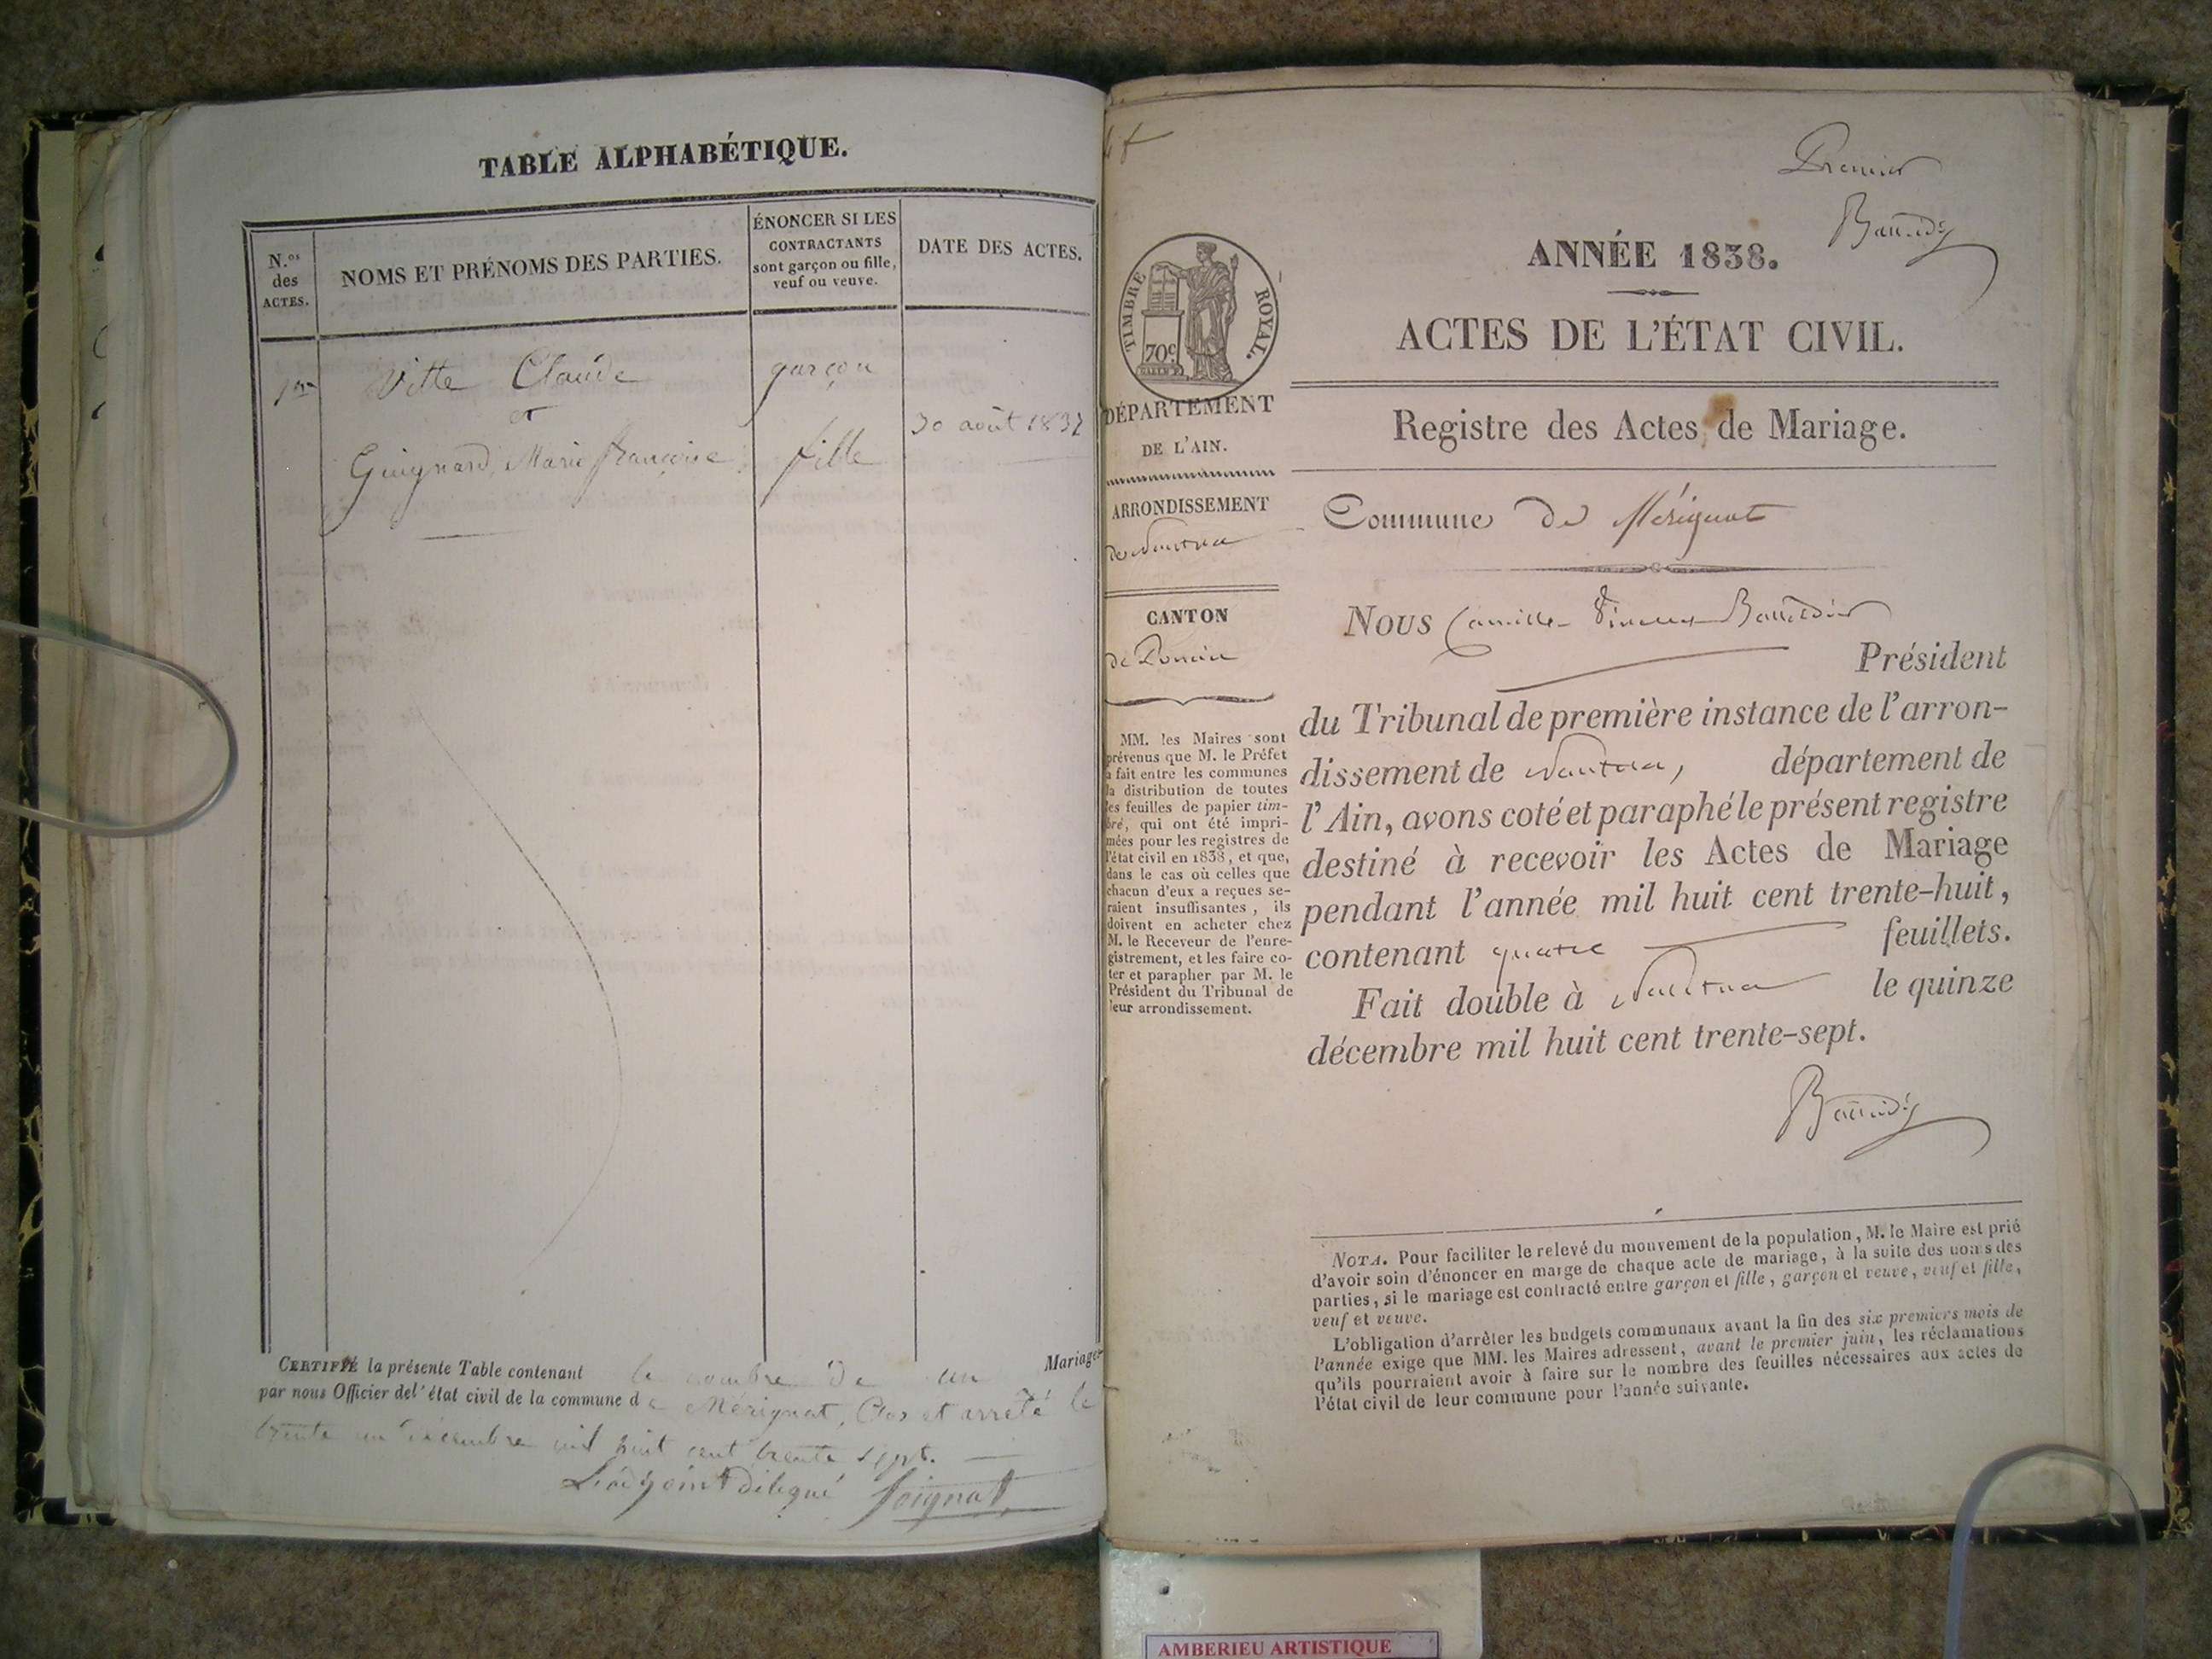 TABLE ALPHABÉTIQUE.
N.os des ACTES.
NOMS ET PRÉNOMS DES PARTIES.
ÉNONCER SI LES
CONTRACTANTS
sont garçon ou fille,
veuf ou veuve.
DATE DES ACTES.
1er Vitte Claude garçon
et
30 août 1837
Guignard, Marie françoise fille
CERTIFIÉ la présente Table contenant le nombre de un Mariages
par nous Officier de l'état civil de la commune de Mérignat, Clos et arreté le
trente un décembre mil huit cent trente sept.
L'adjoint délégué Soignat
Premier
ANNÉE 1838.
ACTES DE L'ÉTAT CIVIL.
TIMBRE ROYAL.
70c
DÉPARTEMENT
DE L'AIN.
Registre des Actes de Mariage.
ARRONDISSEMENT
de Nantua
Commune de Mérignat
CANTON
de Poncin
MM. les Maires sont
prévenus que M. le Préfet
a fait entre les communes
la distribution de toutes
les feuilles de papier tim-
bré, qui ont été impri-
mées pour les registres de
l'état civil en 1838, et que,
dans le cas où celles que
chacun d'eux a reçues se-
raient insuffisantes, ils
doivent en acheter chez
M. le Receveur de l'enre-
gistrement, et les faire co-
ter et parapher par M. le
Président du Tribunal de
leur arrondissement.
Nous Camille
Président
du Tribunal de première instance de l'arron-
dissement de Nantua, département de
l'Ain, avons coté et paraphé le présent registre
destiné à recevoir les Actes de Mariage
pendant l'année mil huit cent trente-huit,
contenant quatre feuillets.
Fait double à Nantua le quinze
décembre mil huit cent trente-sept.
NOTA. Pour faciliter le relevé du mouvement de la population, M. le Maire est prié
d'avoir soin d'énoncer en marge de chaque acte de mariage, à la suite des noms des
parties, si le mariage est contracté entre garçon et fille, garçon et veuve, veuf et fille,
veuf et veuve.
L'obligation d'arrêter les budgets communaux avant la fin des six premiers mois de
l'année exige que MM. les Maires adressent, avant le premier juin, les réclamations
qu'ils pourraient avoir à faire sur le nombre des feuilles nécessaires aux actes de
l'état civil de leur commune pour l'année suivante.
AMBERIEU ARTISTIQUE